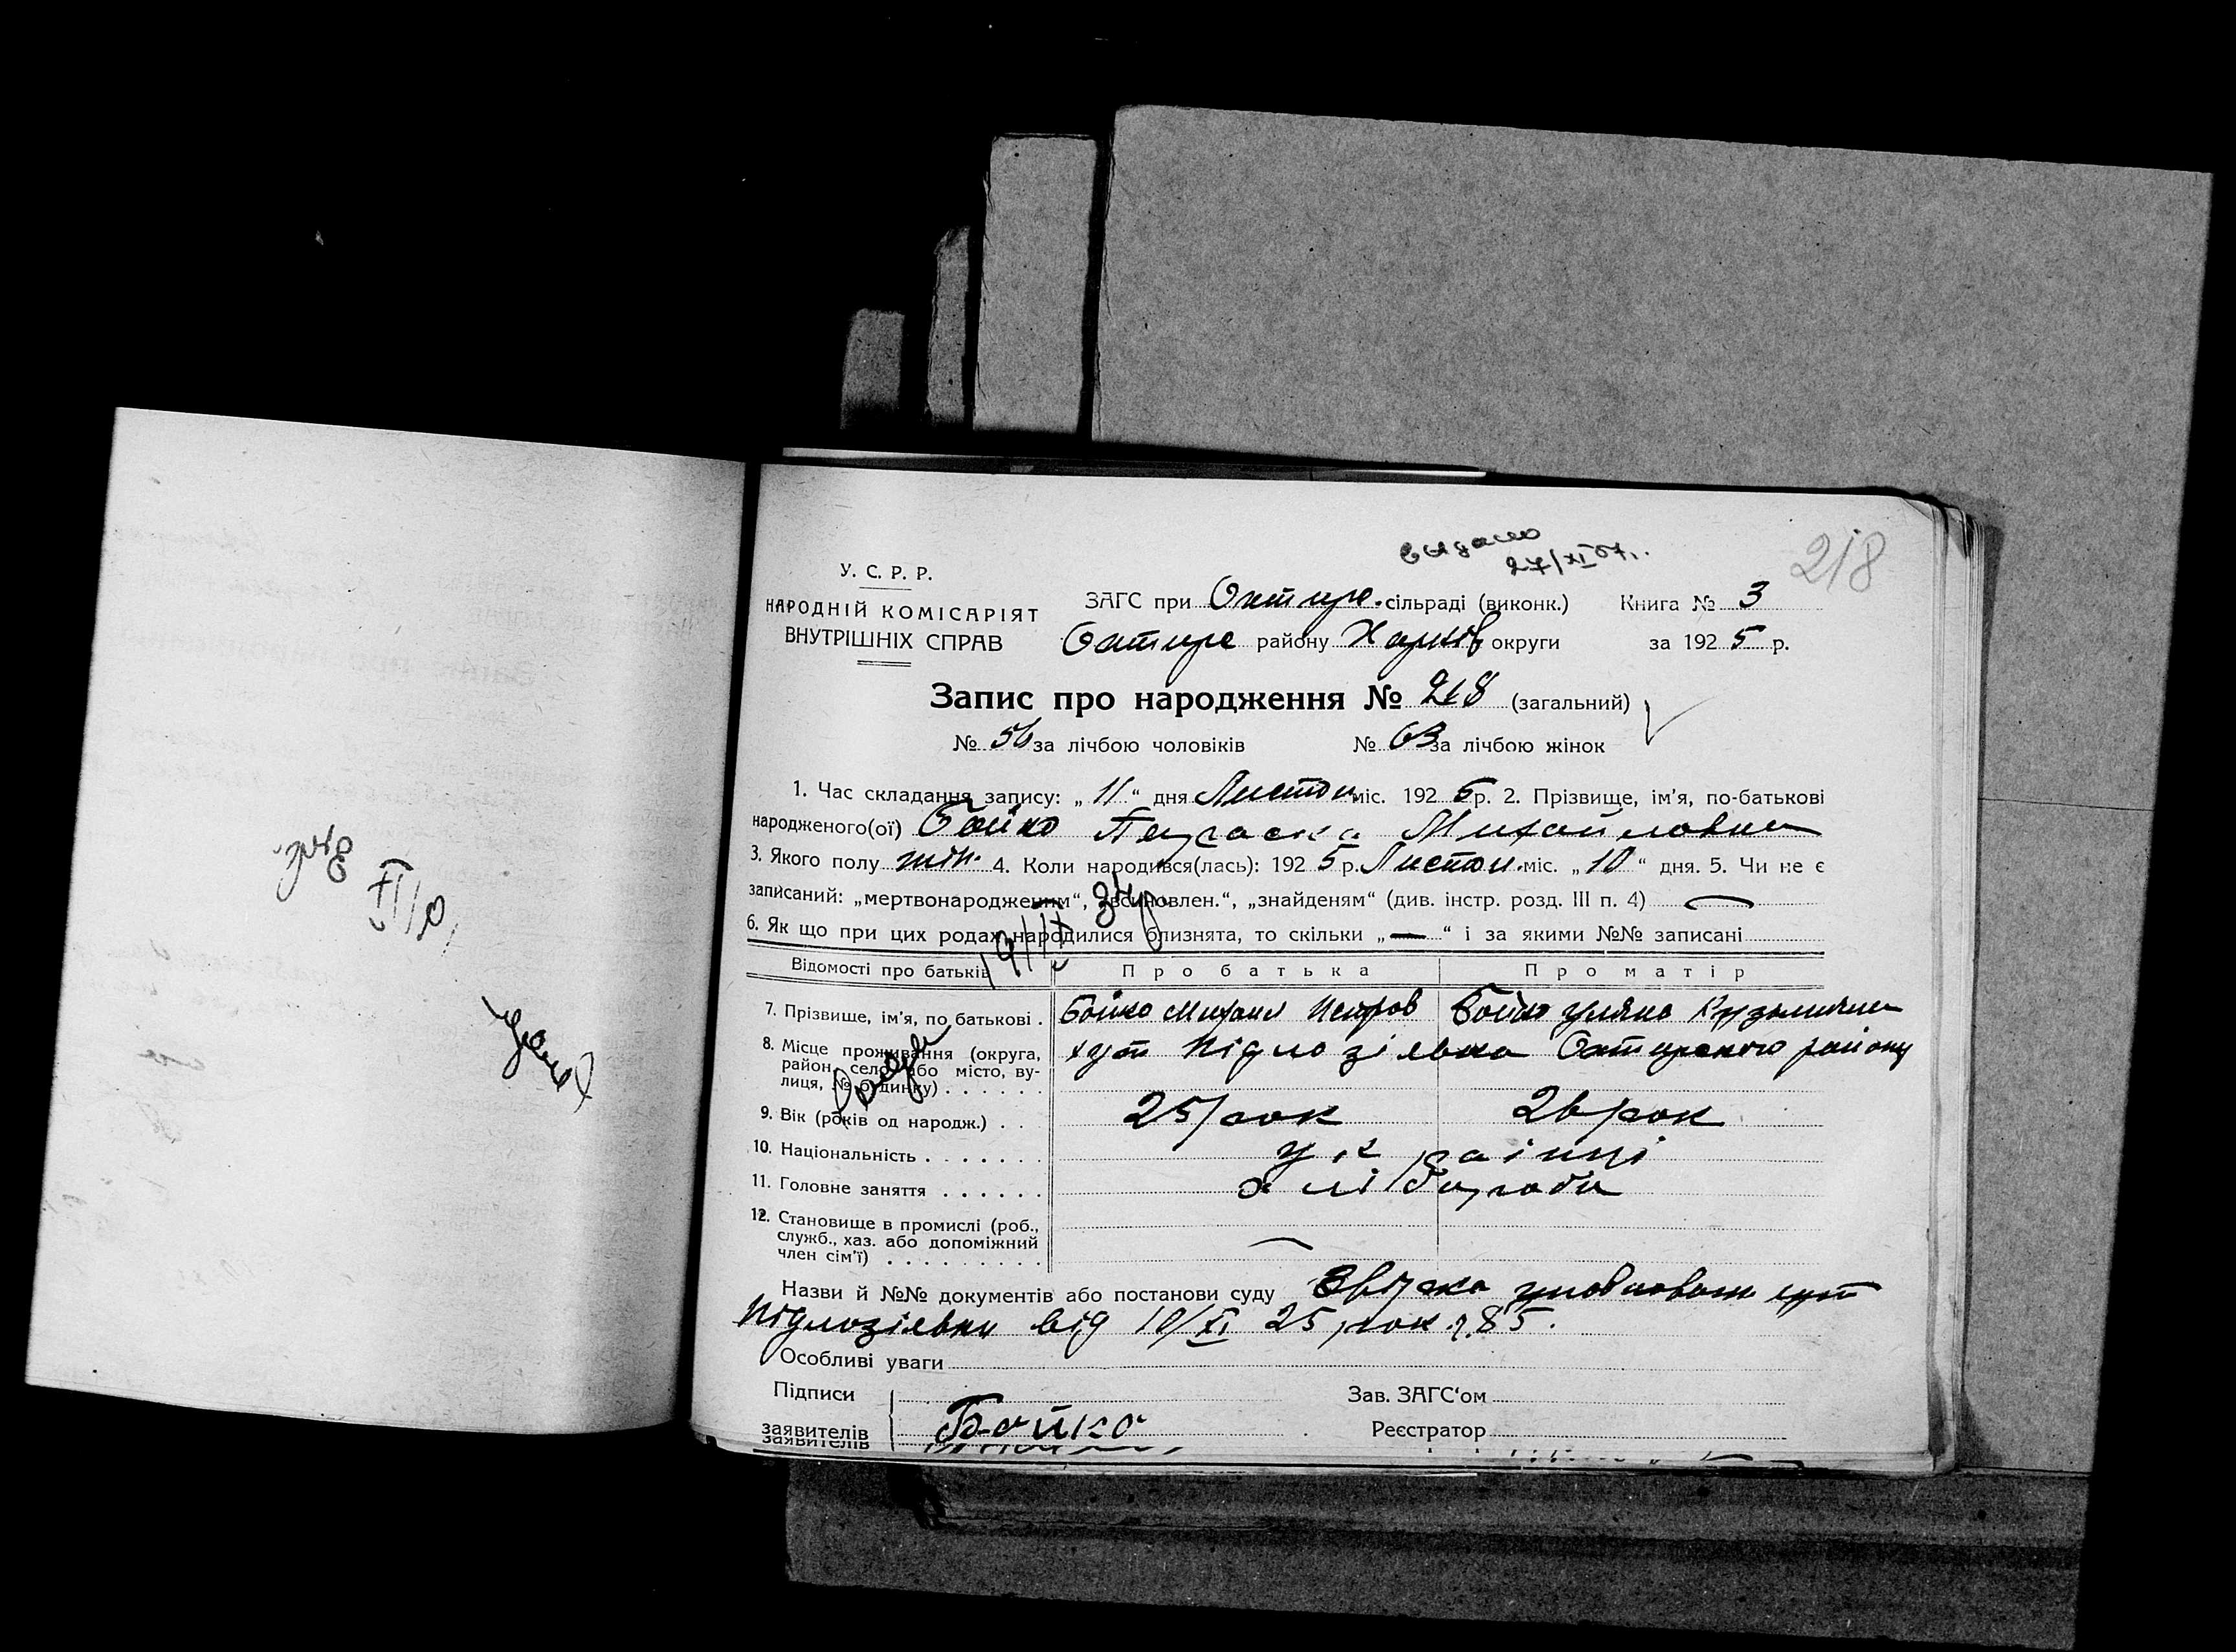 218
У. С. Р. Р.
НАРОДНІЙ КОМІСАРІЯТ
ВНУТРІШНІХ СПРАВ
ЗАГС при сільраді (виконк.) Книга № 3
району Харків округи за 1925 р.
Запис про народження № 218 (загальний)
№ 56 за лічбою чоловіків № 63 за лічбою жінок
1. Час складання запису: „11“ дня Листоп. міс. 1925 р. 2. Прізвище, ім'я, по-батькові
народженого(ої) Бойко Параска Михайловна
3. Якого полу жін. 4. Коли народився(лась): 1925 р. Листоп. міс. „10“ дня. 5. Чи не є
записаний: „мертвонародженим“, „всиновлен.“, „знайденям“ (див. інстр. розд. III п. 4) —
6. Як що при цих родах народилися близнята, то скільки „—“ і за якими №№ записані
Відомості про батьків Про батька Про матір
7. Прізвище, ім'я, по батькові . Бойко Михаил Петров Бойко Уляна
8. Місце проживання (округа,
район, село або місто, ву-
лиця, № будинку) . . . . . .
хут Підлозіевка району
9. Вік (років од народж.) . . 25 рок 26 рок
10. Національність . . . . . . . українці
11. Головне заняття . . . . . . хлібороби
12. Становище в промислі (роб.,
служб., хаз. або допоміжний
член сім'ї) . . . . . . . . . —
Назви й №№ документів або постанови суду
Підлозіевки від 10/XI 25 рок. 85.
Особливі уваги
Підписи Зав. ЗАГС'ом
заявителів Бойко Реєстратор
заявителів